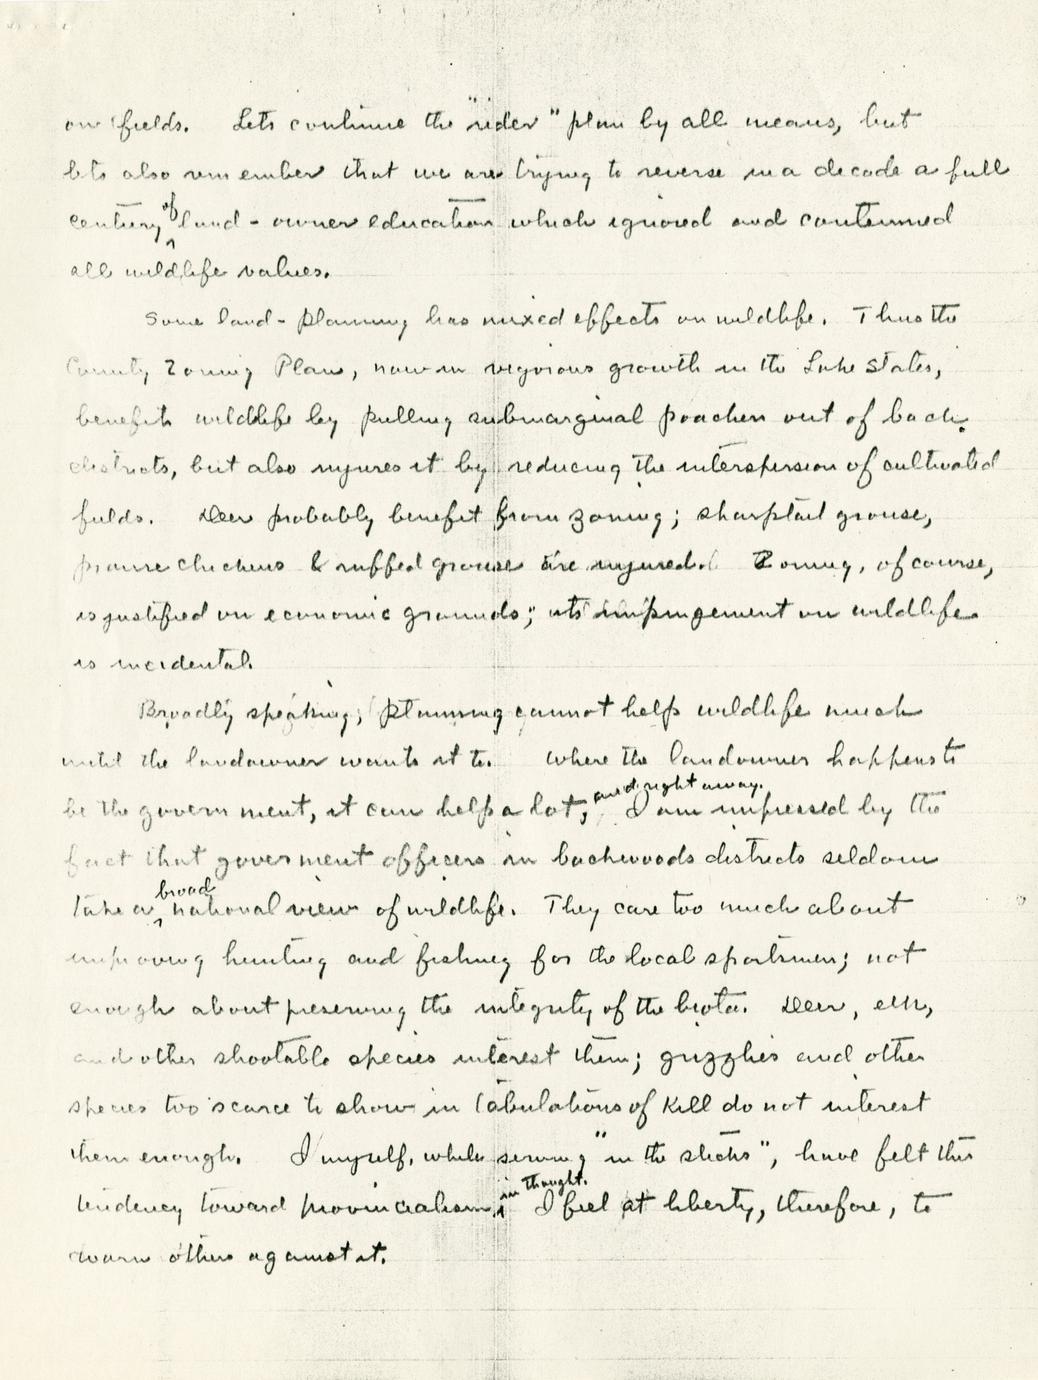 our fields. Lets continue the "rider" plan by all means, but
lets also remember that we are trying to reverse in a decade a full
century of land-owner education which ignored and contemned
all wildlife values.
Some land-planning has mixed effects on wildlife. Thus the
County Zoning Plan, now in vigorous growth in the Lake States,
benefits wildlife by pulling submarginal poachers out of back
districts, but also injures it by reducing the interspersion of cultivated
fields. Deer probably benefit from zoning; sharptail grouse,
prairie chickens & ruffed grouse are injured. Zoning, of course,
is justified on economic grounds; its impingement on wildlife
is incidental.
Broadly speaking, planning cannot help wildlife much
until the landowner wants it to. Where the landowner happens to
be the government, it can help a lot, and right away. I am impressed by the
fact that government officers in backwoods districts seldom
take a broad national view of wildlife. They care too much about
improving hunting and fishing for the local sportsmen; not
enough about preserving the integrity of the biota. Deer, elk,
and other shootable species interest them; grizzlies and other
species too scarce to show in tabulations of kill do not interest
them enough. I myself, while serving "in the sticks", have felt this
tendency toward provincialism in thought. I feel at liberty, therefore, to
warn others against it.